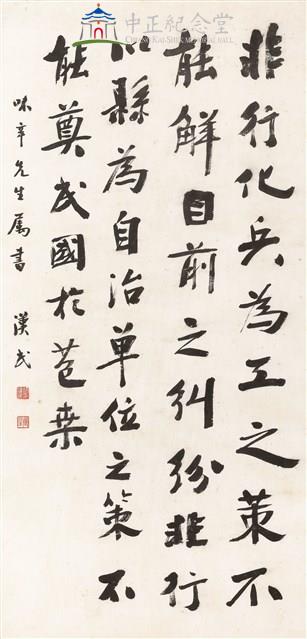 中正紀念堂
CHIANG KAI-SHEK MEMORIAL HALL
非行化兵為工之策不
能解目前之糾紛非行
以縣為自治單位之策不
能奠民國於苞桑
味辛先生屬書 漢民